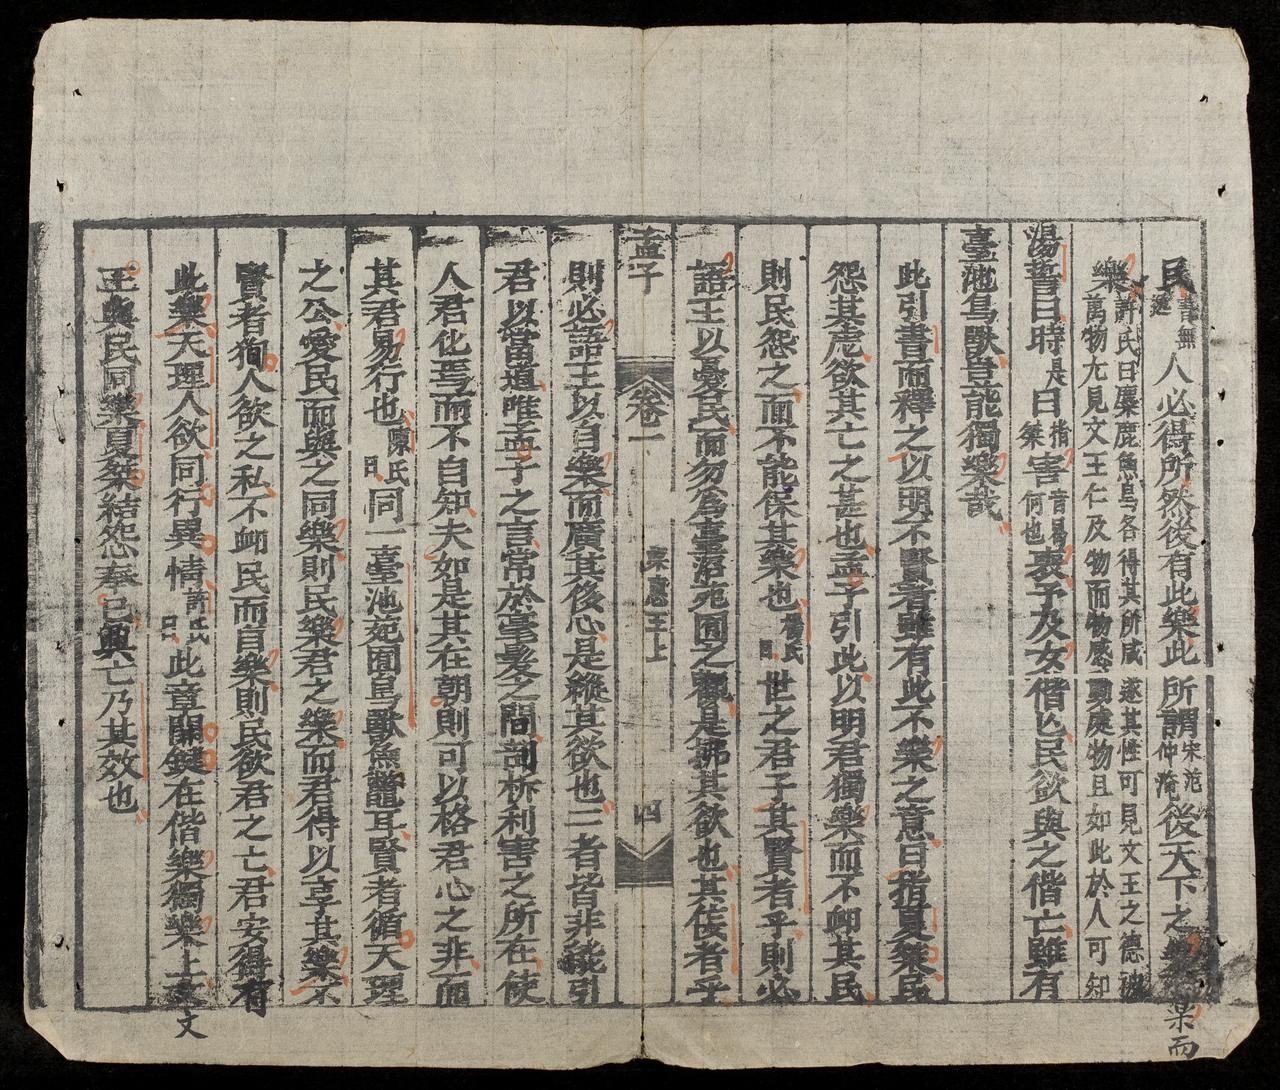 民耆無逸人必得所然後有此樂此所謂宋范仲淹後天下之樂樂而
樂許氏曰麋鹿魚鳥各得其所咸遂其性可見文王之德被
萬物尤見文王仁及物而物感動庶物且如此於人可知
湯誓曰時是日指桀害音曷何也喪予及女偕亡民欲與之偕亡雖有
臺池鳥獸豈能獨樂哉
此引書而釋之以明不賢者雖有此不樂之意日指夏桀民
怨其虐欲其亡之甚也孟子引此以明君獨樂而不卹其民
則民怨之而不能保其樂也楊氏曰世之君子其賢者乎則必
語王以憂民而勿為臺沼苑囿之觀是拂其欲也其佞者乎
孟子 卷一 梁惠王上 四
則必語王以自樂而廣其侈心是縱其欲也二者皆非能引
君以當道唯孟子之言常於毫髮之間剖析利害之所在使
人君化焉而不自知夫如是其在朝則可以格君心之非而
其君易行也陳氏曰同一臺池苑囿鳥獸魚鼈耳賢者循天理
之公愛民而與之同樂則民樂君之樂而君得以享其樂不
賢者徇人欲之私不卹民而自樂則民欲君之亡君安得有
此樂天理人欲同行異情許氏曰此章關鍵在偕樂獨樂上文文
王與民同樂夏桀結怨奉己興亡乃其效也